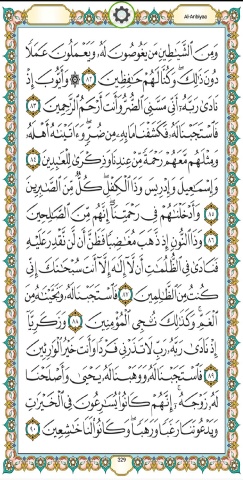 Al-Anbiyaa
وَمِنَ ٱلشَّيَٰطِينِ مَن يَغُوصُونَ لَهُۥ وَيَعْمَلُونَ عَمَلًا
دُونَ ذَٰلِكَ ۖ وَكُنَّا لَهُمْ حَٰفِظِينَ ٨٢ ۞ وَأَيُّوبَ إِذْ
نَادَىٰ رَبَّهُۥٓ أَنِّى مَسَّنِىَ ٱلضُّرُّ وَأَنتَ أَرْحَمُ ٱلرَّٰحِمِينَ ٨٣
فَٱسْتَجَبْنَا لَهُۥ فَكَشَفْنَا مَا بِهِۦ مِن ضُرٍّ ۖ وَءَاتَيْنَٰهُ أَهْلَهُۥ
وَمِثْلَهُم مَّعَهُمْ رَحْمَةً مِّنْ عِندِنَا وَذِكْرَىٰ لِلْعَٰبِدِينَ ٨٤
وَإِسْمَٰعِيلَ وَإِدْرِيسَ وَذَا ٱلْكِفْلِ ۖ كُلٌّ مِّنَ ٱلصَّٰبِرِينَ
٨٥ وَأَدْخَلْنَٰهُمْ فِى رَحْمَتِنَآ ۖ إِنَّهُم مِّنَ ٱلصَّٰلِحِينَ
٨٦ وَذَا ٱلنُّونِ إِذ ذَّهَبَ مُغَٰضِبًا فَظَنَّ أَن لَّن نَّقْدِرَ عَلَيْهِ
فَنَادَىٰ فِى ٱلظُّلُمَٰتِ أَن لَّآ إِلَٰهَ إِلَّآ أَنتَ سُبْحَٰنَكَ إِنِّى
كُنتُ مِنَ ٱلظَّٰلِمِينَ ٨٧ فَٱسْتَجَبْنَا لَهُۥ وَنَجَّيْنَٰهُ مِنَ
ٱلْغَمِّ ۚ وَكَذَٰلِكَ نُۨجِى ٱلْمُؤْمِنِينَ ٨٨ وَزَكَرِيَّآ
إِذْ نَادَىٰ رَبَّهُۥ رَبِّ لَا تَذَرْنِى فَرْدًا وَأَنتَ خَيْرُ ٱلْوَٰرِثِينَ
٨٩ فَٱسْتَجَبْنَا لَهُۥ وَوَهَبْنَا لَهُۥ يَحْيَىٰ وَأَصْلَحْنَا
لَهُۥ زَوْجَهُۥٓ ۚ إِنَّهُمْ كَانُوا۟ يُسَٰرِعُونَ فِى ٱلْخَيْرَٰتِ
وَيَدْعُونَنَا رَغَبًا وَرَهَبًا ۖ وَكَانُوا۟ لَنَا خَٰشِعِينَ ٩٠
329